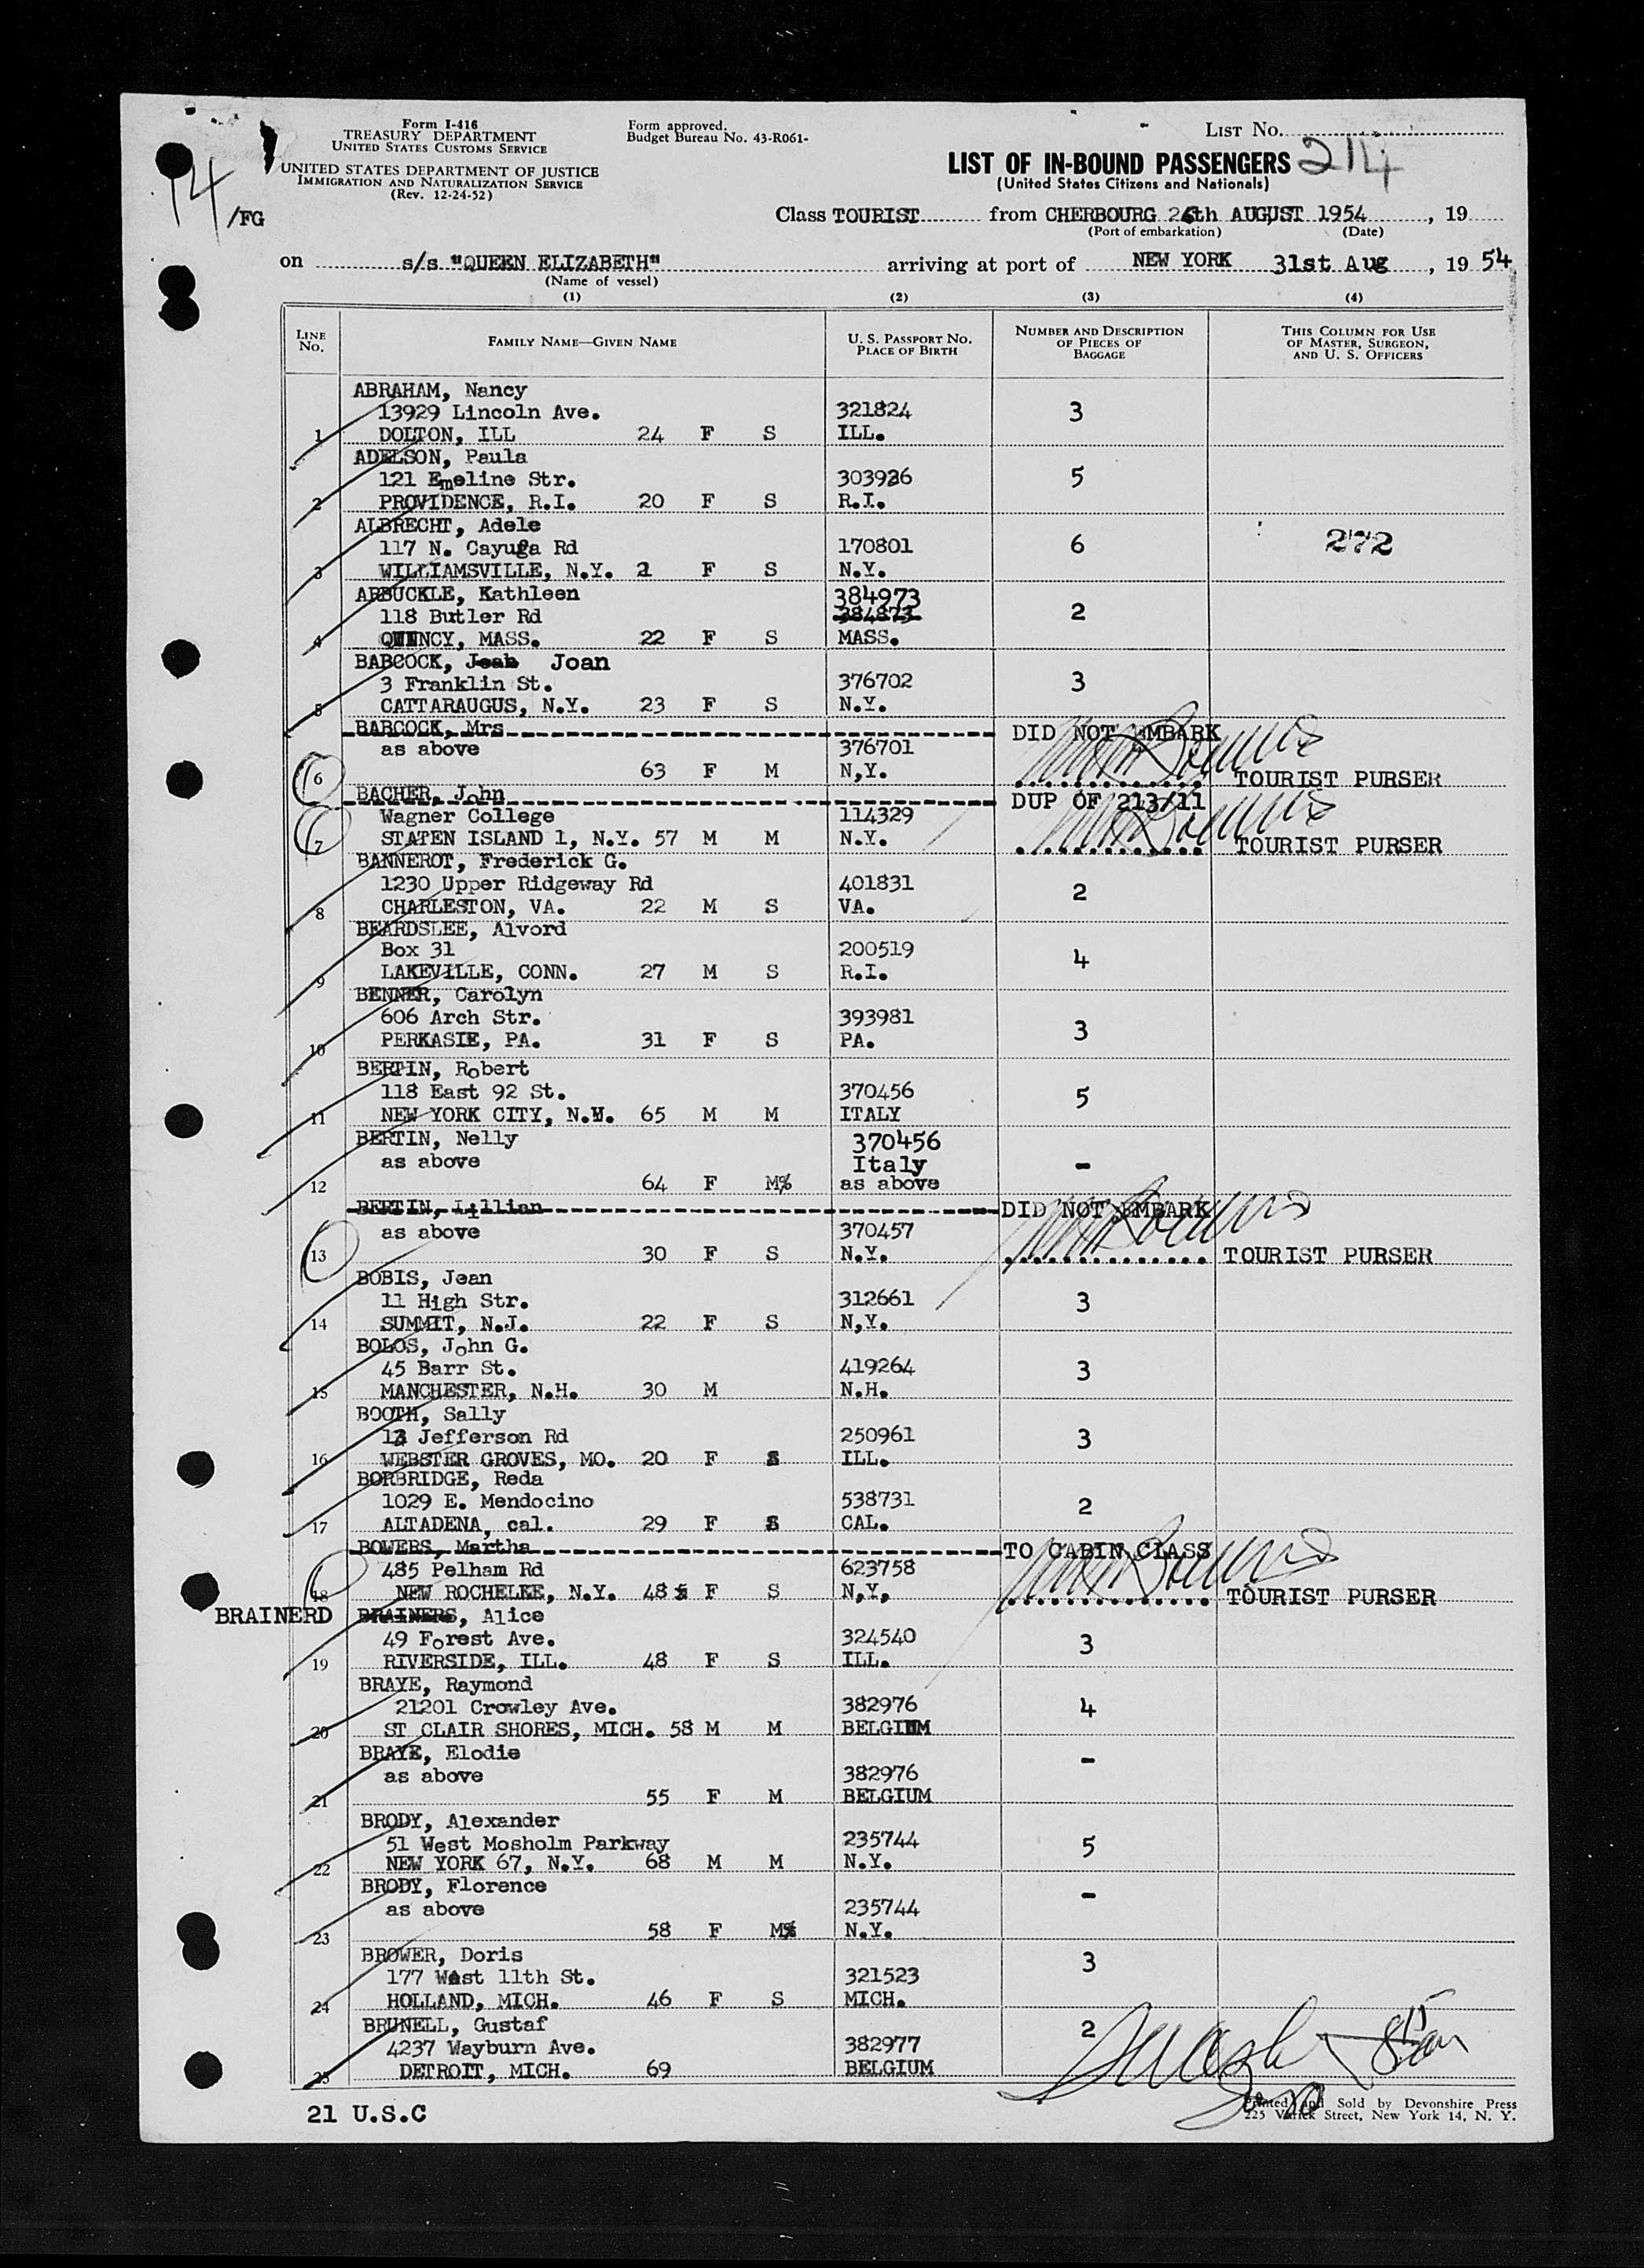 Form I-416
TREASURY DEPARTMENT
UNITED STATES CUSTOMS SERVICE
UNITED STATES DEPARTMENT OF JUSTICE
IMMIGRATION AND NATURALIZATION SERVICE
(Rev. 12-24-52)
14
/FG
Form approved.
Budget Bureau No. 43-R061-
LIST NO.
LIST OF IN-BOUND PASSENGERS 214
(United States Citizens and Nationals)
Class TOURIST from CHERBOURG 26th AUGUST 1954, 19
(Port of embarkation) (Date)
on s/s "QUEEN ELIZABETH" arriving at port of NEW YORK 31st Aug, 19 54
(Name of vessel)
(1) (2) (3) (4)
LINE NO. FAMILY NAME—GIVEN NAME U. S. PASSPORT NO. PLACE OF BIRTH NUMBER AND DESCRIPTION OF PIECES OF BAGGAGE THIS COLUMN FOR USE OF MASTER, SURGEON, AND U. S. OFFICERS
ABRAHAM, Nancy
13929 Lincoln Ave. 321824 3
1 DOLTON, ILL 24 F S ILL.
ADELSON, Paula
121 Emeline Str. 303926 5
2 PROVIDENCE, R.I. 20 F S R.I.
ALBRECHT, Adele
117 N. Cayuga Rd 170801 6 272
3 WILLIAMSVILLE, N.Y. F S N.Y.
ARBUCKLE, Kathleen 384973
118 Butler Rd 384873 2
4 QUINCY, MASS. 22 F S MASS.
BABCOCK, Jean Joan
3 Franklin St. 376702 3
5 CATTARAUGUS, N.Y. 23 F S N.Y.
BABCOCK, Mrs DID NOT EMBARK
as above 376701
6 63 F M N,Y. TOURIST PURSER
BACHER, John DUP OF 213/11
Wagner College 114329
7 STATEN ISLAND 1, N.Y. 57 M M N.Y. TOURIST PURSER
BANNEROT, Frederick G.
1230 Upper Ridgeway Rd 401831 2
8 CHARLESTON, VA. 22 M S VA.
BEARDSLEE, Alvord
Box 31 200519 4
9 LAKEVILLE, CONN. 27 M S R.I.
BENNER, Carolyn
606 Arch Str. 393981 3
10 PERKASIE, PA. 31 F S PA.
BERTIN, Robert
118 East 92 St. 370456 5
11 NEW YORK CITY, N.Y. 65 M M ITALY
BERTIN, Nelly 370456
as above Italy -
12 64 F M% as above
BERTIN, Lillian DID NOT EMBARK
as above 370457
13 30 F S N.Y. TOURIST PURSER
BOBIS, Jean
11 High Str. 312661 3
14 SUMMIT, N.J. 22 F S N,Y.
BOLOS, John G.
45 Barr St. 419264 3
15 MANCHESTER, N.H. 30 M N.H.
BOOTH, Sally
13 Jefferson Rd 250961 3
16 WEBSTER GROVES, MO. 20 F S ILL.
BORBRIDGE, Reda
1029 E. Mendocino 538731 2
17 ALTADENA, cal. 29 F S CAL.
BOWERS, Martha TO CABIN CLASS
485 Pelham Rd 623758
18 NEW ROCHELLE, N.Y. 48 F S N,Y, TOURIST PURSER
BRAINERD BRAINERS, Alice
49 Forest Ave. 324540 3
19 RIVERSIDE, ILL. 48 F S ILL.
BRAYE, Raymond
21201 Crowley Ave. 382976 4
20 ST CLAIR SHORES, MICH. 58 M M BELGIUM
BRAYE, Elodie -
as above 382976
21 55 F M BELGIUM
BRODY, Alexander
51 West Mosholm Parkway 235744 5
22 NEW YORK 67, N.Y. 68 M M N.Y.
BRODY, Florence -
as above 235744
23 58 F M% N.Y.
BROWER, Doris 3
177 West 11th St. 321523
24 HOLLAND, MICH. 46 F S MICH.
BRUNELL, Gustaf 2
4237 Wayburn Ave. 382977
25 DETROIT, MICH. 69 BELGIUM
21 U.S.C
Printed and Sold by Devonshire Press
225 Varick Street, New York 14, N. Y.